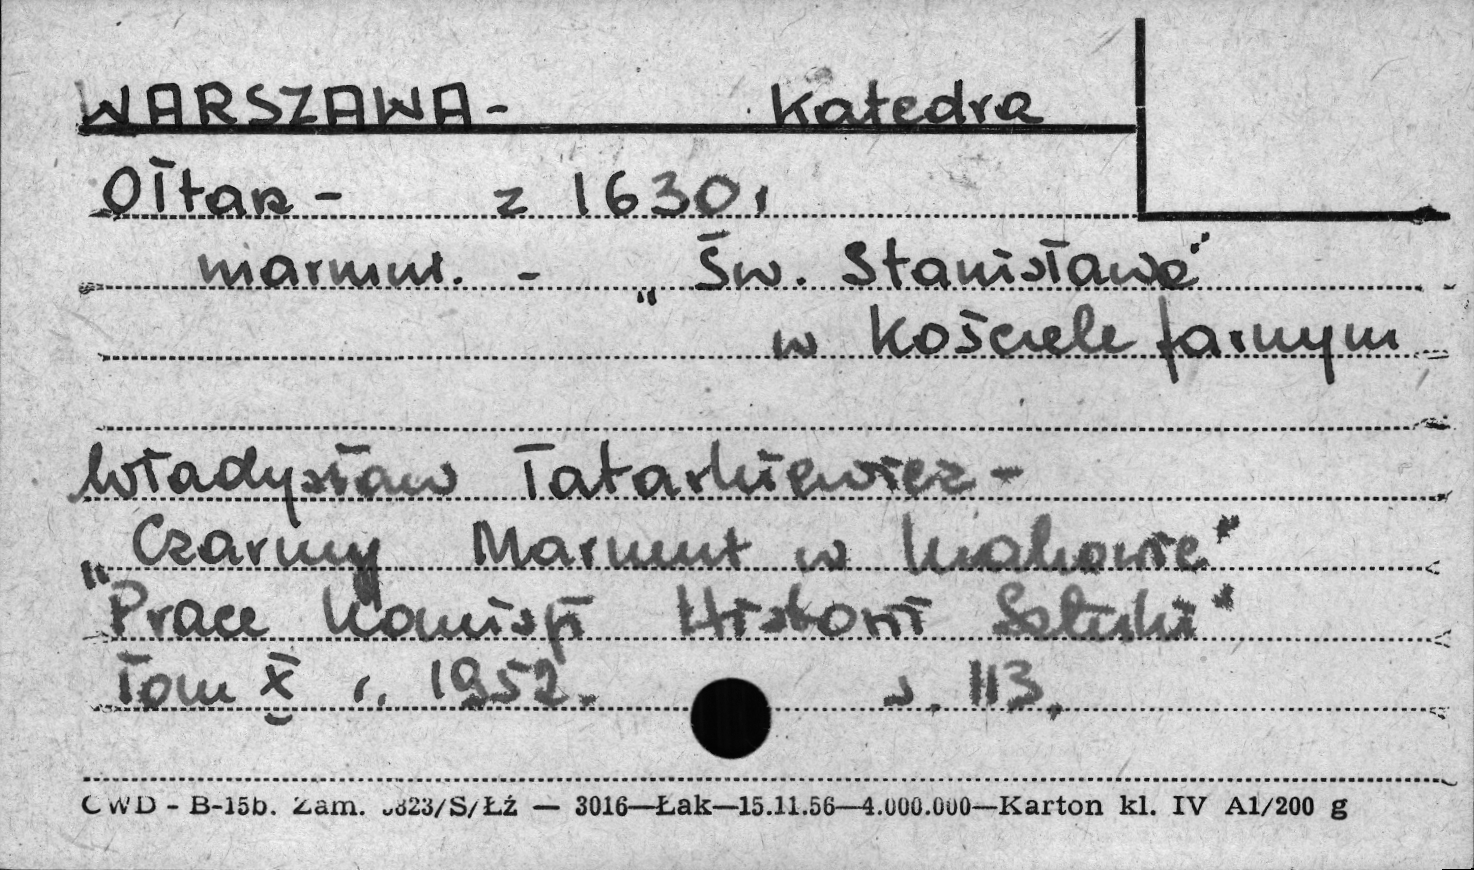 WARSZAWA - Katedra
Ołtarz - z 1630 r
marmur. - „Św. Stanisława"
w Kościele farnym
Władysław Tatarkiewicz -
„Czarny Marmur w Krakowie"
"Prace Komisji Historii Sztuki"
Tom X r. 1952. s. 113.
CWD - B-15b. Zam. 3823/S/Łź — 3016—Łak—15.11.56—4.000.000—Karton kl. IV A1/200 g